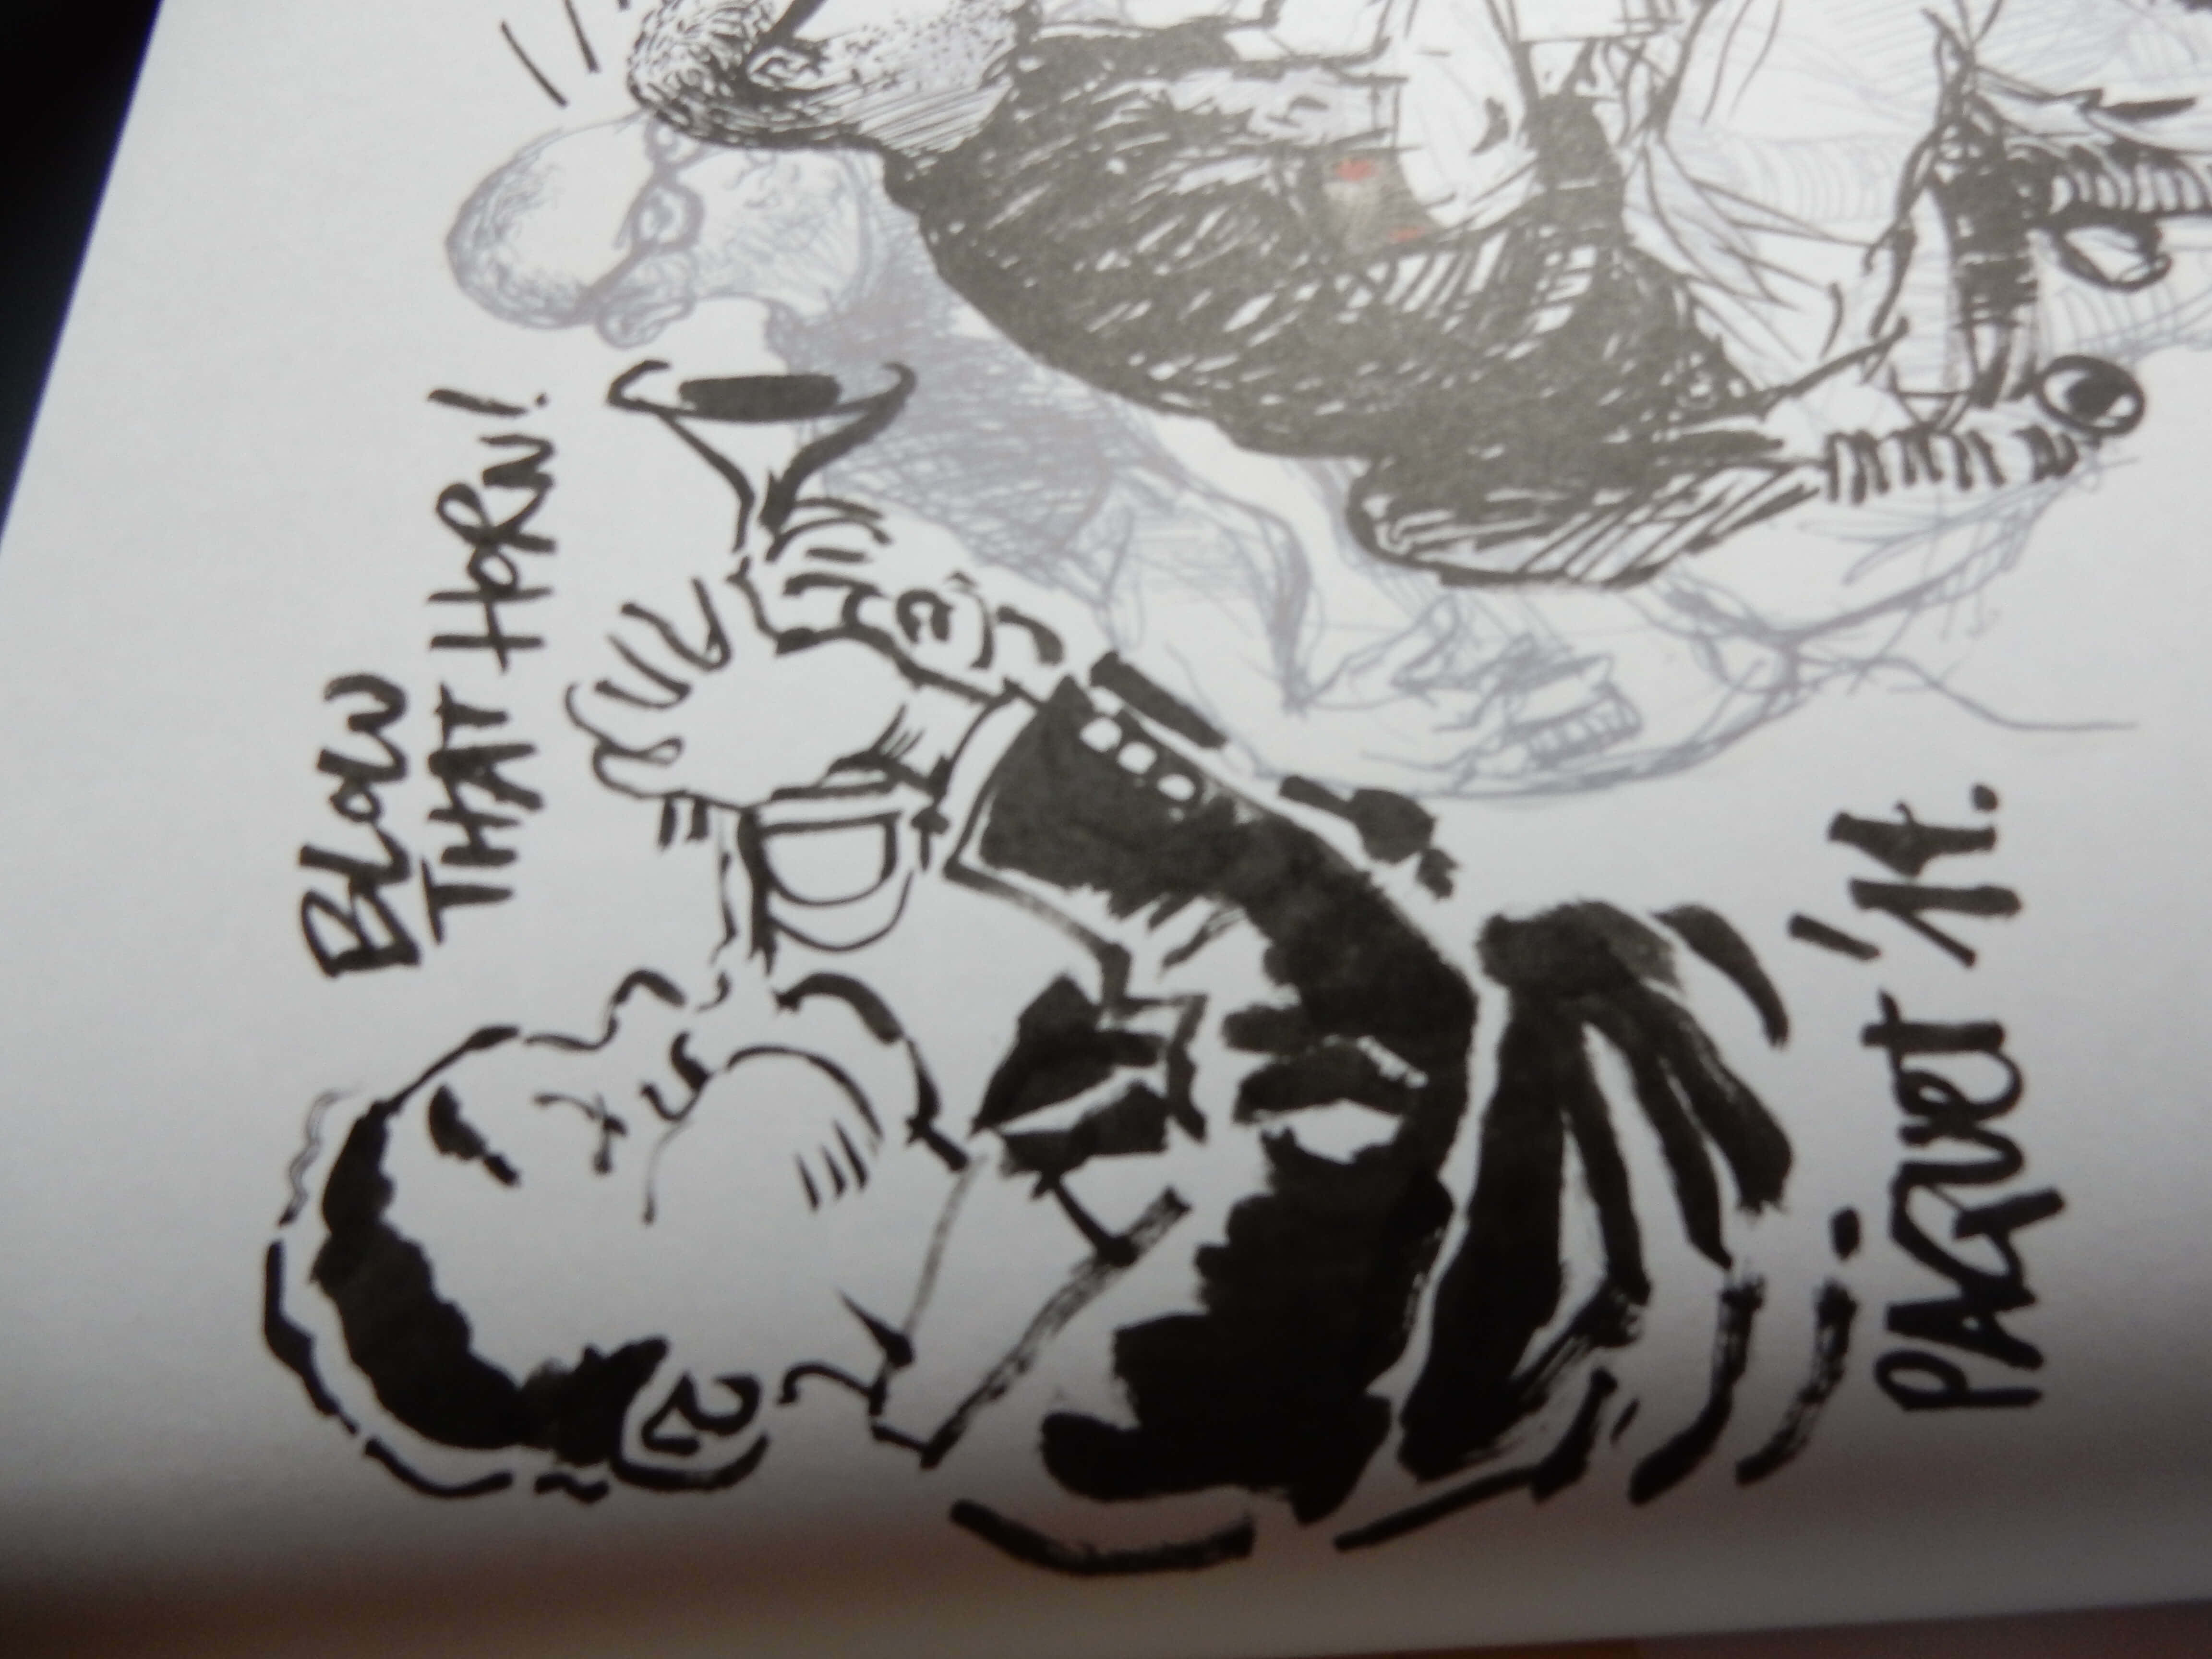 BLOW
THAT HORN!
PAQUET '14.